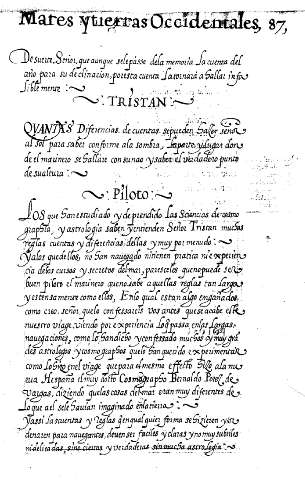 Mares y tierras Occidentales, 87,
De suerte, Señor, que aunque se le passe dela memoria la cuenta del
año para su declinacion, por esta cuenta la tornará a hallar infa
lible mente
TRISTAN
QVANTAS Diferencias de cuentas se pueden hazer señor
al sol para saber conforme ala sombra, la parte y lugar don
de el marinero se hallare con su nao y saber el verdadero punto
de su altura
Piloto
LOS que han estudiado y deprendido las Sciencias de cosmo
graphia, y astrologia saben y entienden Señor Tristan muchas
reglas cuentas y diferencias dellas y muy por menudo
y alos que dellos, no han navegado ni tienen pratica ni experien
cia delos cursos y secretos del mar, paresceles que no puede ser
buen piloto el marinero que no sabe aquellas reglas tan largas
y estensamente como ellos, En lo qual estan algo engañados
como creo, señor, que lo confessareis vos antes que se acabe este
nuestro viage, viendo por experiencia lo q̃ passa en las largas
navegaciones, como lo han dicho y confessado muchos y muy gran
des astrologos y cosmographos que lo han querido experimentar
como lo hizo en el viage que para el mesmo effecto hizo ala nu
eva Hespaña el muy docto Cosmographo Bernaldo Perez de
Vargas, diziendo que las cosas del mar eran muy diferentes de
lo que a el se le havian imaginado en la tierra
y assi las cuentas y reglas generales que se hizieren y or
denaren para navegantes, deven ser faciles y claras y no muy subtiles
ni delicadas, sino ciertas y verdaderas sin mucha astrologia